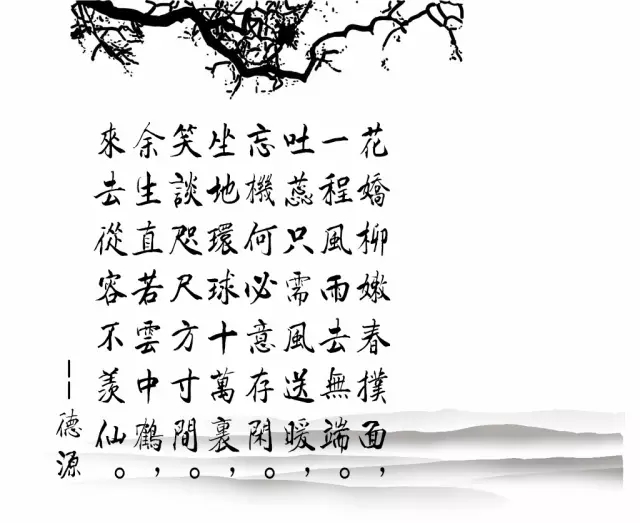 花嬌柳嫩春撲面，
一程風雨去無端。
吐蕊只需風送暖，
忘機何必意存閑。
坐地環球十萬裏，
笑談咫尺方寸間。
余生直若雲中鶴，
來去從容不羨仙。
——德源